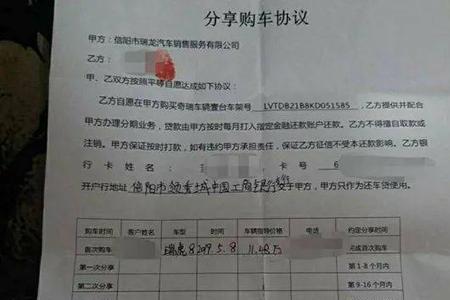 分享购车协议
甲方：信阳市瑞龙汽车销售服务有限公司
乙方：
甲、乙双方按照平等自愿达成如下协议：
乙方自愿在甲方购买奇瑞车辆壹台车架号 LVTDB21B8KD051585，乙方提供并配合
甲方办理分期业务，贷款由甲方按时每月打入指定金融还款账户还款。乙方不得擅自取款或
注销。甲方保证按时打款，如有违约甲方承担责任，保证乙方征信不受本还款影响。乙方银
行 卡 姓 名： 卡 号 6
开户行地址 信阳市 中国工商银行 于甲方，甲方只作为还车贷使用。
购车时间 客户姓名 车型 车辆指导价格 电话 约定分享时间
首次购车 瑞虎8 2019.5.8 11.48万 完成首次购车
第一次分享 第 1-8 个月内
第二次分享 第 9-16 个月内